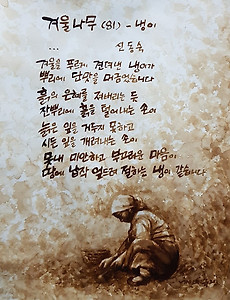 겨울나무 (81) - 냉이
... 신동숙
겨울을 푸르게 견뎌낸 냉이가
뿌리에 단맛을 머금었습니다
흙의 은혜를 져내리는 듯
잔뿌리에 흙을 털어내는 손이
늙은 잎을 거두지 못하고
시든 잎을 개려내는 손이
못내 미안하고 부끄러운 마음이
땅에 납작 엎드려 절하는 냉이 같습니다